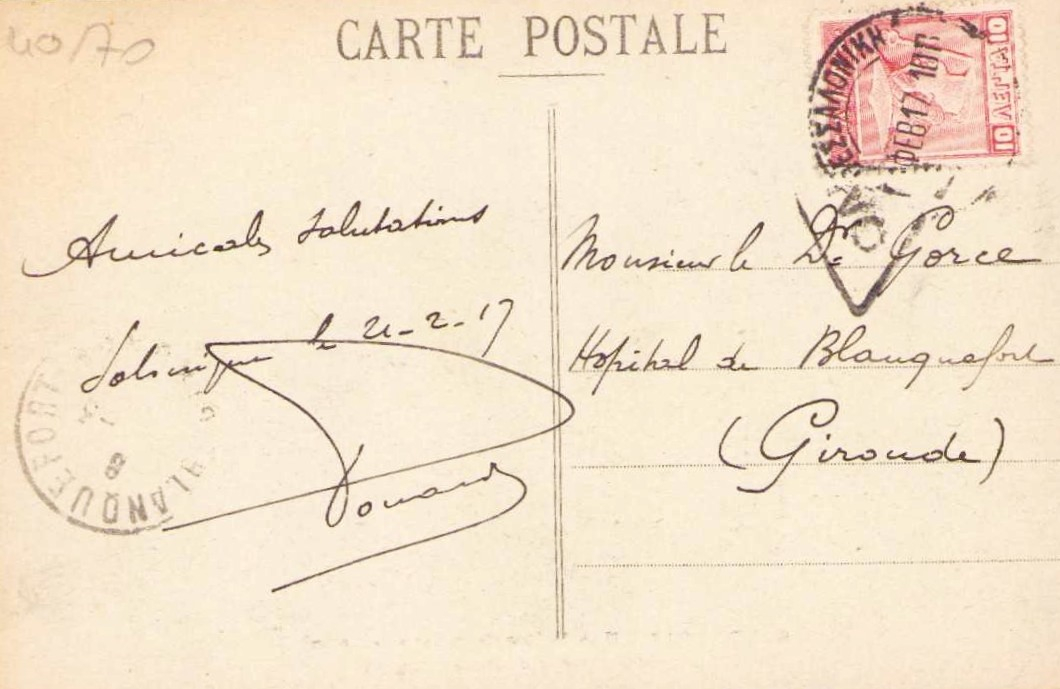 40/70
CARTE POSTALE
10 ΛΕΠΤΑ 10
ΘΕΣΣΑΛΟΝΙΚΗ
ΦΕΒ 17 10Π
Amicales salutations
Salonique le 21-2-17
Monsieur le Dr Gorce
Hopital de Blanquefort
(Gironde)
BLANQUEFORT
8